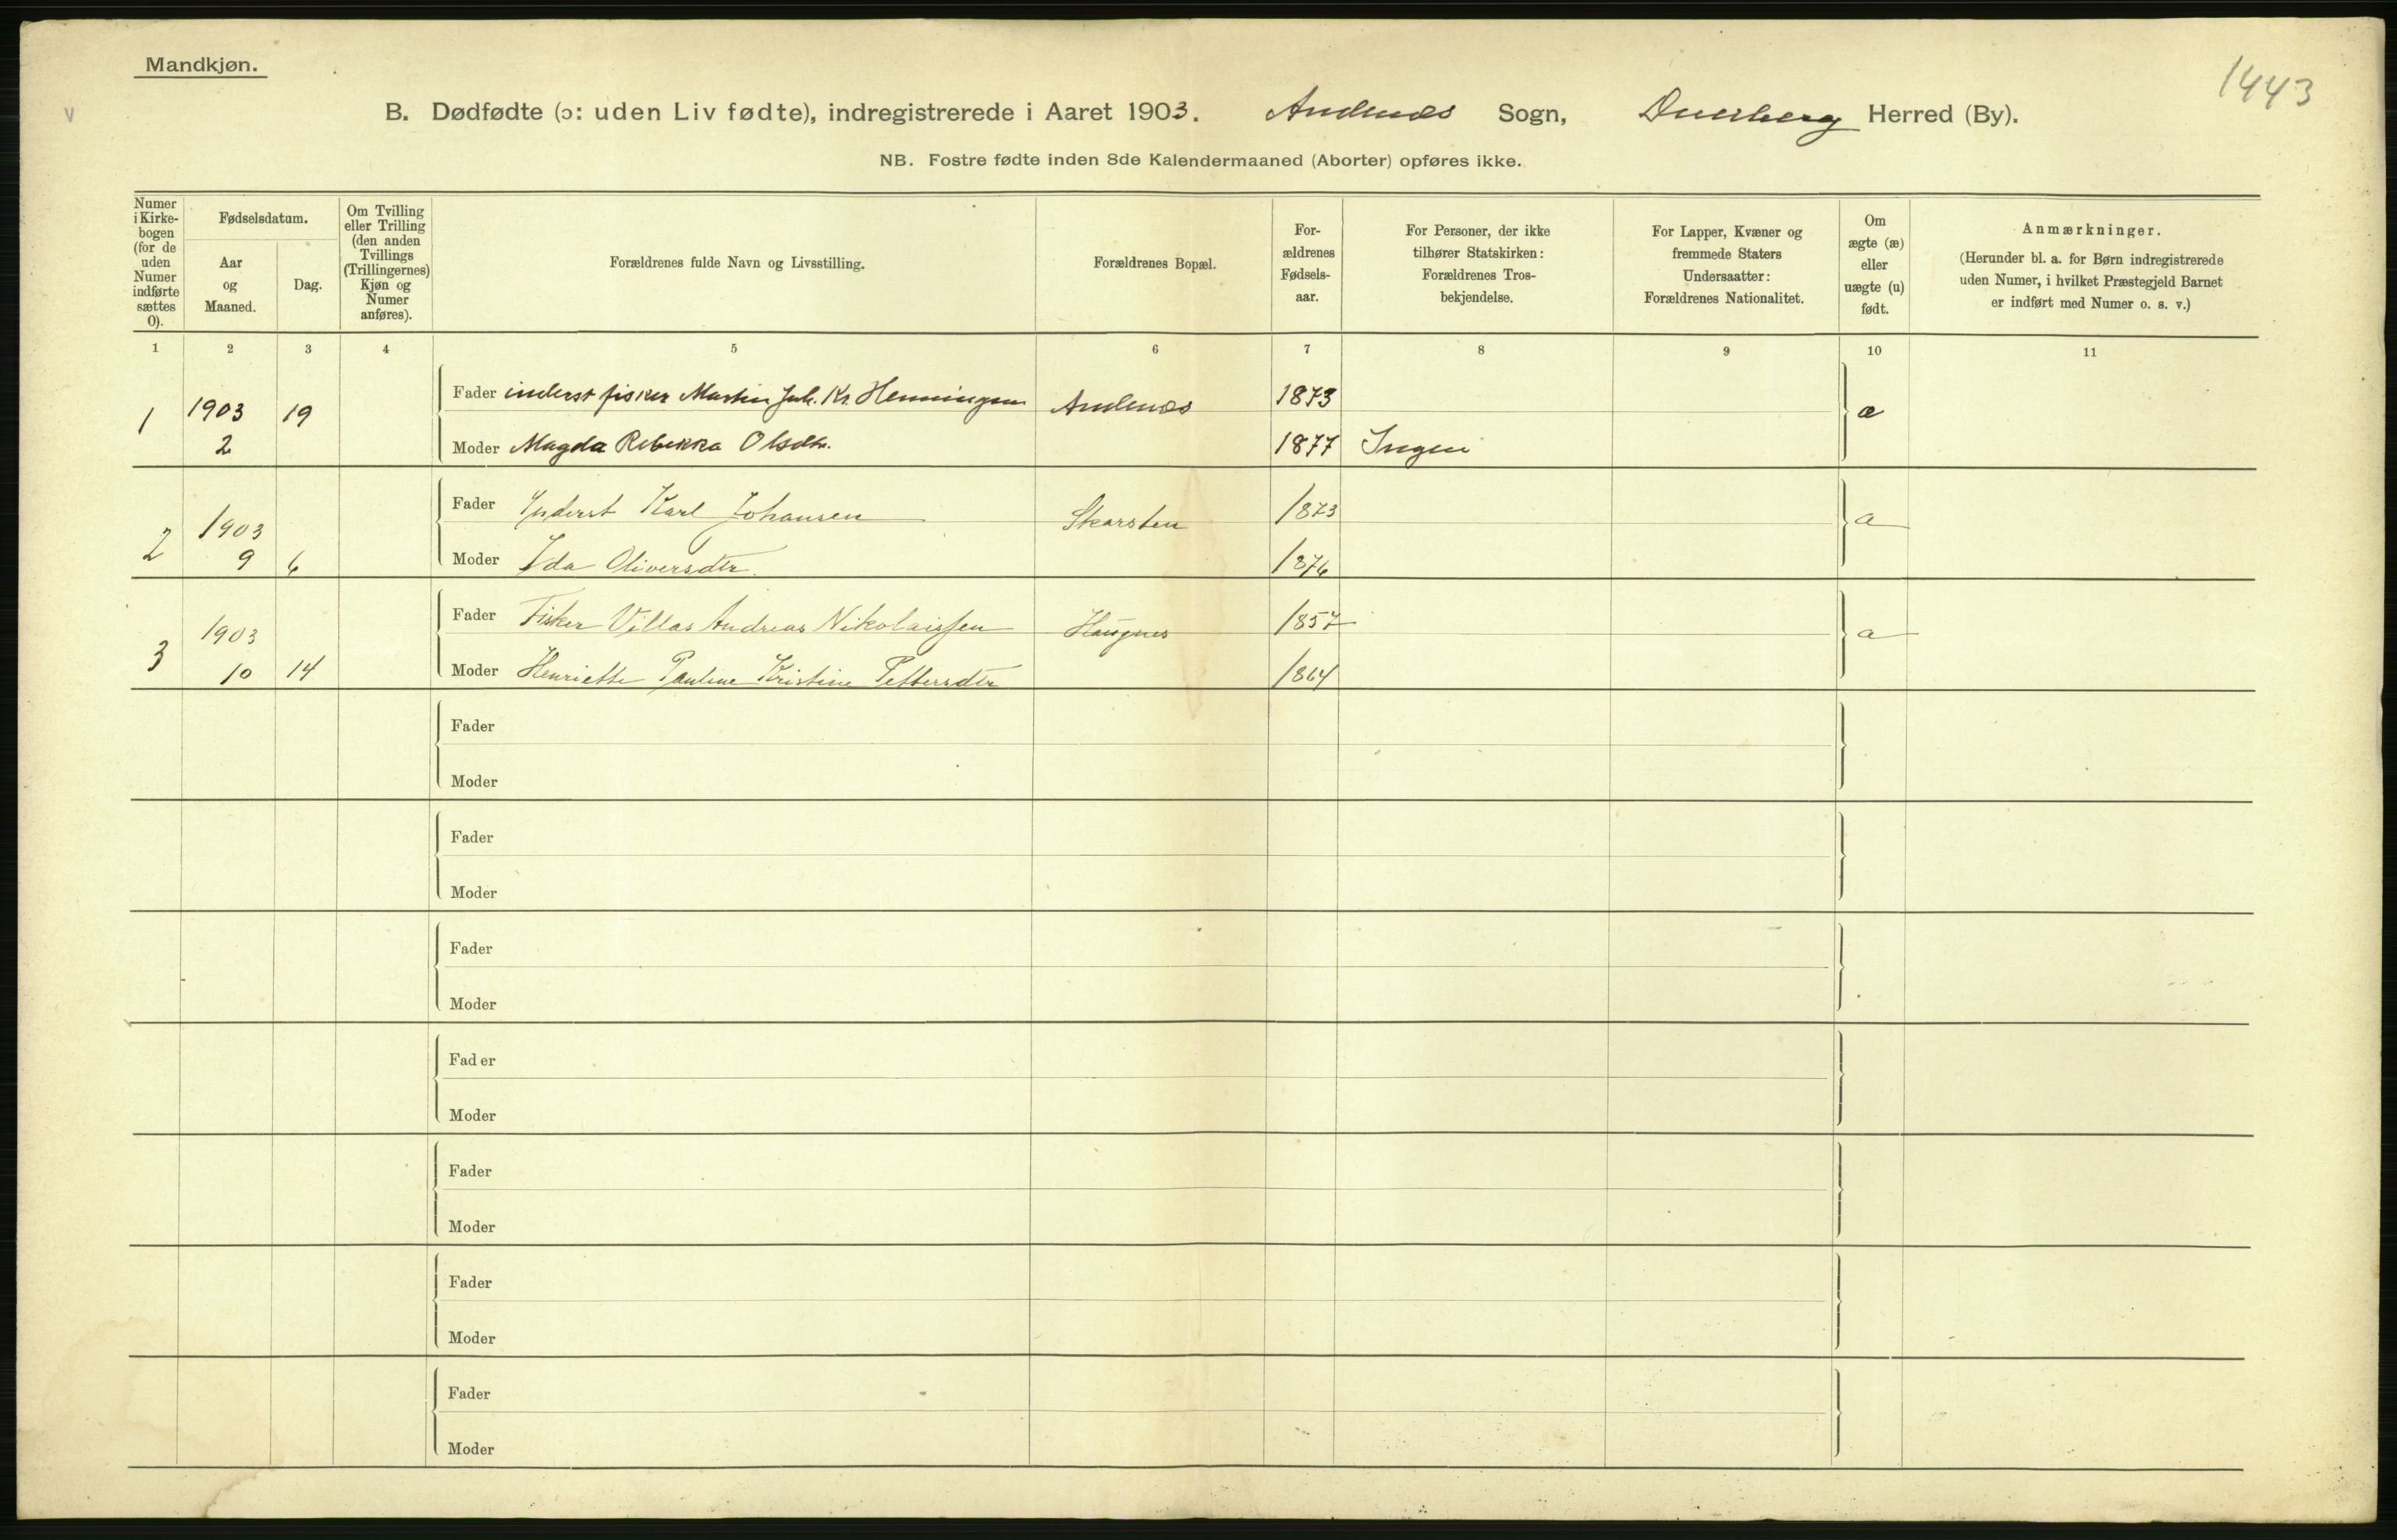 Mandkjøn.
1443
B. Dødfødte (ɔ: uden Liv fødte), indregistrerede i Aaret 1903. Andenæs Sogn, Dverberg Herred (By).
NB. Fostre fødte inden 8de Kalendermaaned (Aborter) opføres ikke.
Numer
i Kirke-
bogen
(for de
uden
Numer
indførte
sættes
0).
Fødselsdatum.
Aar
og
Maaned.
Dag.
Om Tvilling
eller Trilling
(den anden
Tvillings
(Trillingernes)
Kjøn og
Numer
anføres).
Forældrenes fulde Navn og Livsstilling.
Forældrenes Bopæl.
For-
ældrenes
Fødsels-
aar.
For Personer, der ikke
tilhører Statskirken:
Forældrenes Tros-
bekjendelse.
For Lapper, Kvæner og
fremmede Staters
Undersaatter:
Forældrenes Nationalitet.
Om
ægte (æ)
eller
uægte (u)
født.
Anmærkninger.
(Herunder bl. a. for Børn indregistrerede
uden Numer, i hvilket Præstegjeld Barnet
er indført med Numer o. s. v.)
1 2 3 4 5 6 7 8 9 10 11
Fader inderst fisker Martin Joh. Kr. Henningsen Andenæs 1873
1 1903 19 æ
2 Moder Magda Rebekka Olsdtr. 1877 Ingen
Fader Inderst Karl Johansen Skarsten 1873
2 1903 æ
9 6 Moder Ida Oliversdtr. 1876
Fader Fisker Villas Andreas Nikolaissen Haugnes 1857
3 1903 æ
10 14 Moder Henriette Pauline Kristine Pettersdtr 1864
Fader
Moder
Fader
Moder
Fader
Moder
Fader
Moder
Fader
Moder
Fader
Moder
Fader
Moder